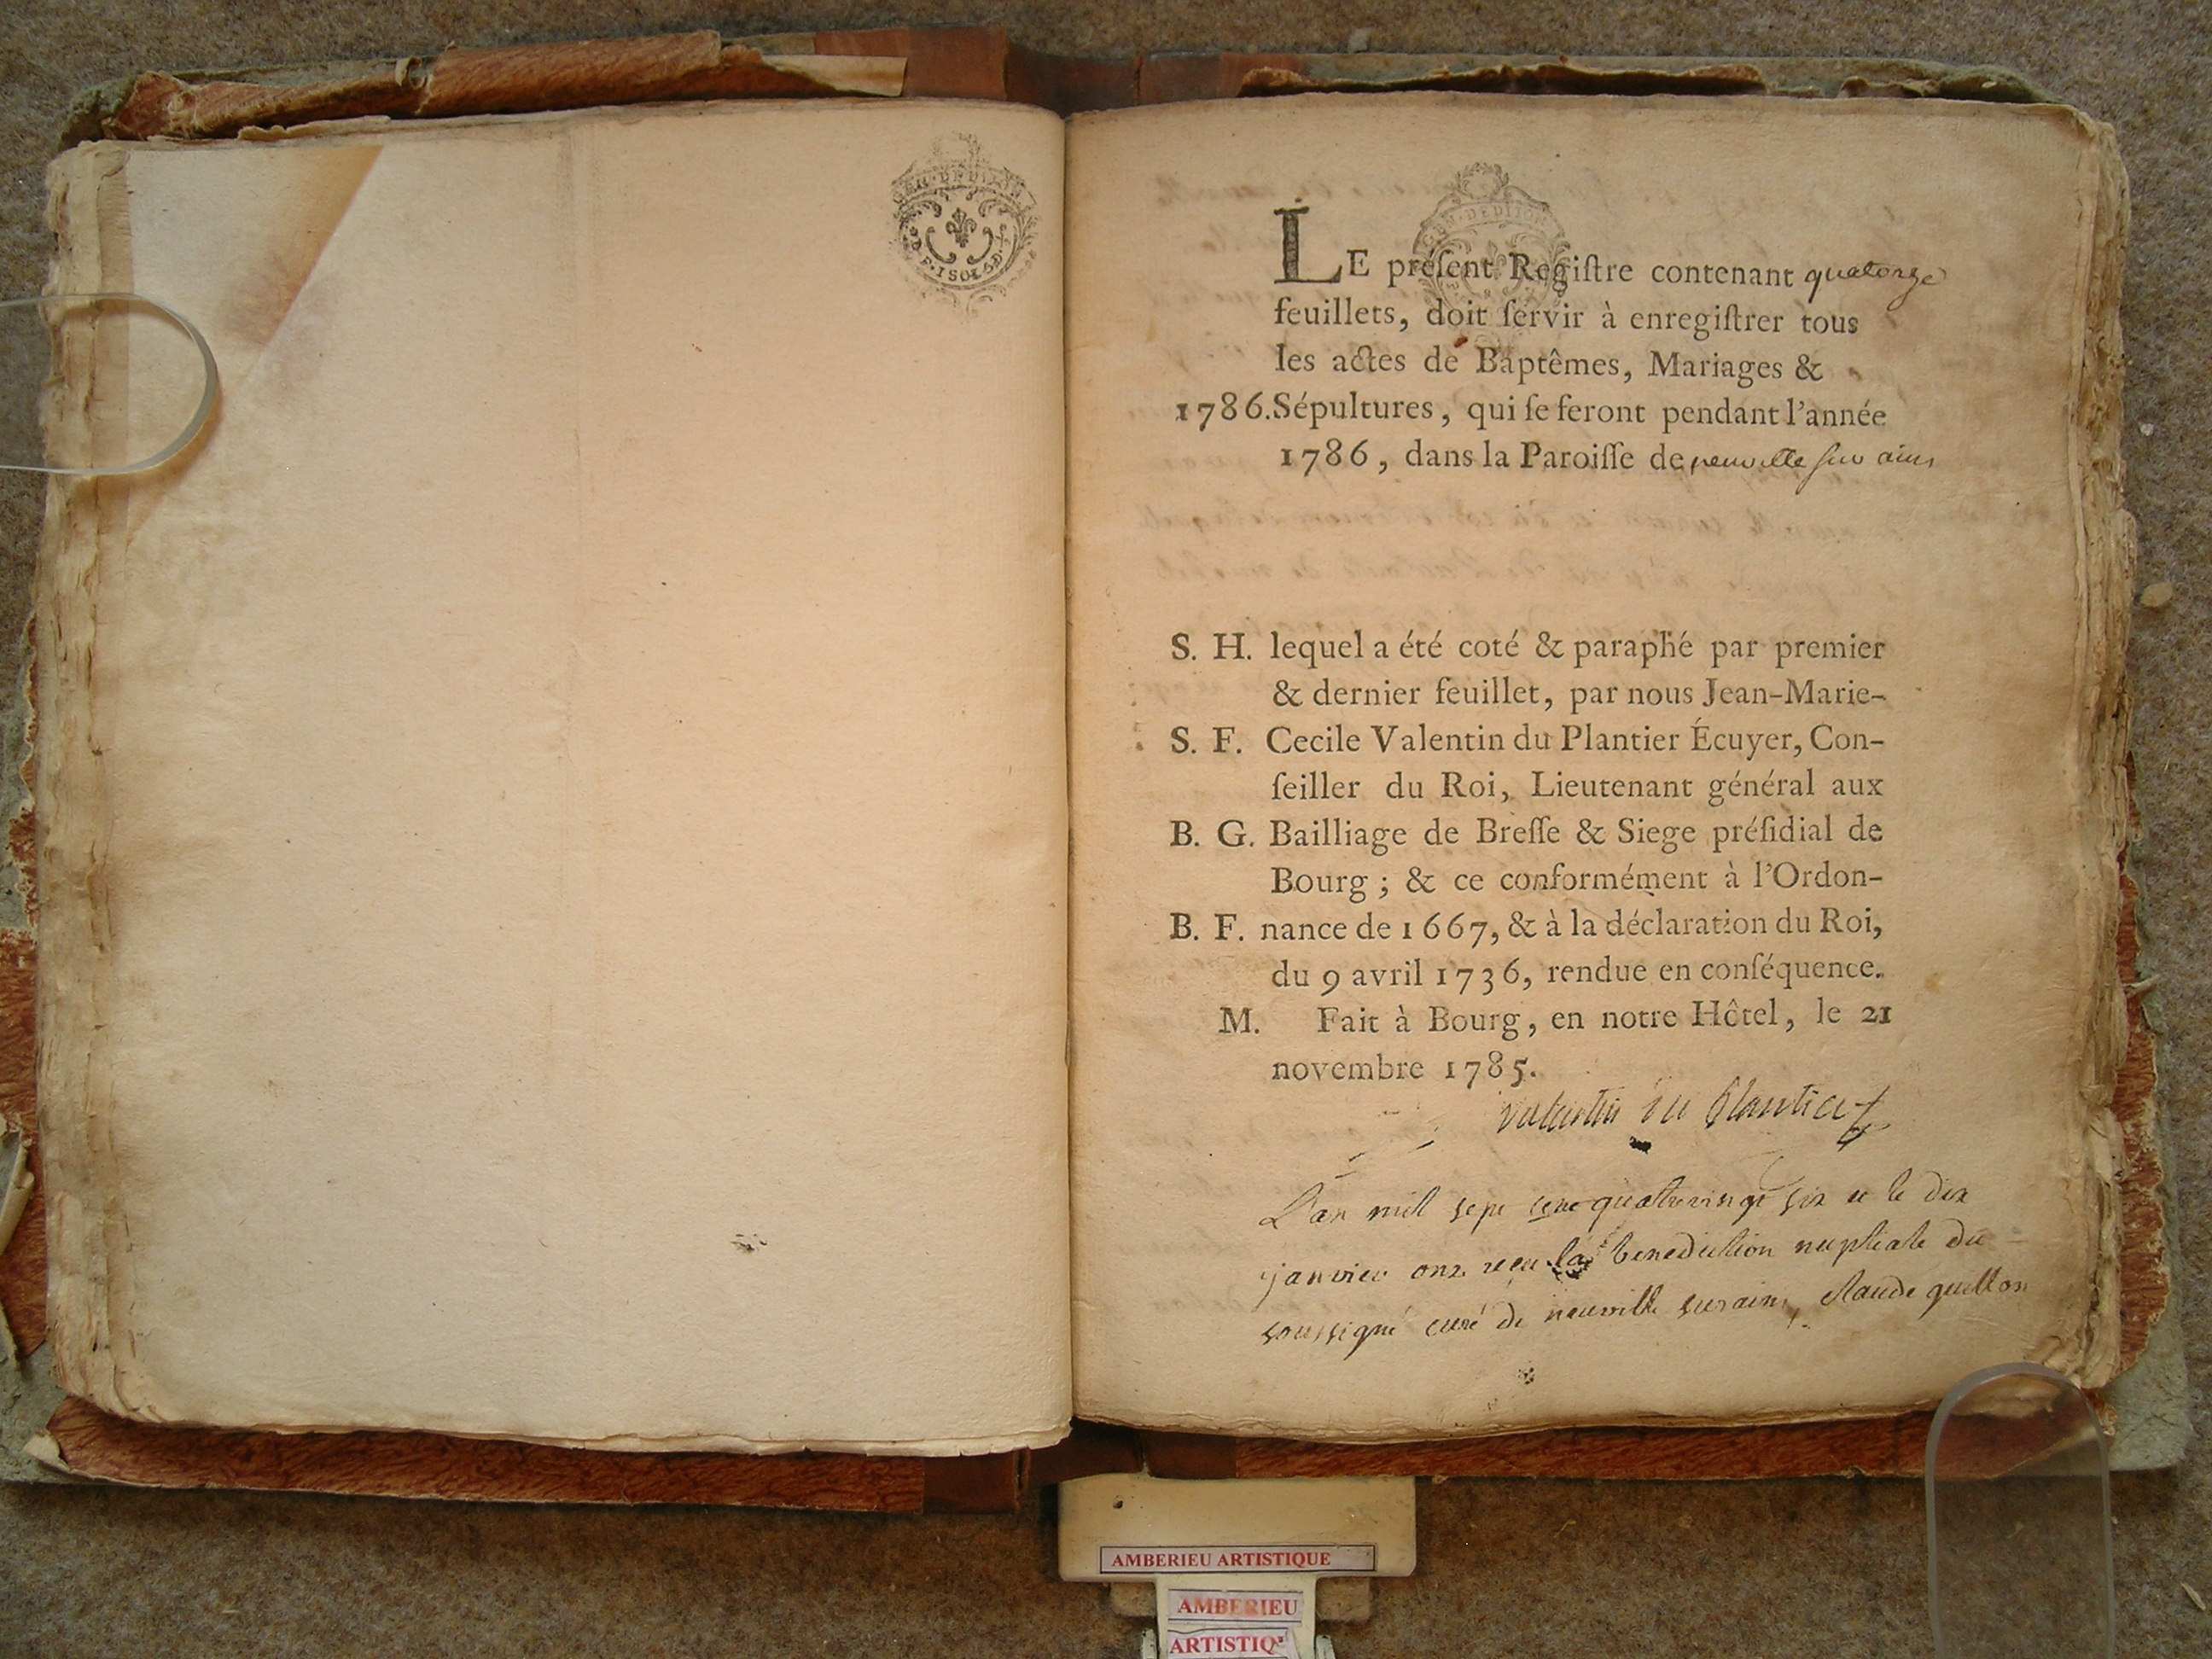 GEN. DE DIJON
LE préſent Regiſtre contenant quatorze
feuillets, doit ſervir à enregiſtrer tous
les actes de Baptêmes, Mariages &
1786. Sépultures, qui ſe feront pendant l'année
1786, dans la Paroiſſe de neuville sur ains
S. H. lequel a été coté & paraphé par premier
& dernier feuillet, par nous Jean-Marie-
S. F. Cecile Valentin du Plantier Écuyer, Con-
ſeiller du Roi, Lieutenant général aux
B. G. Bailliage de Breſſe & Siege préſidial de
Bourg ; & ce conformément à l'Ordon-
B. F. nance de 1667, & à la déclaration du Roi,
du 9 avril 1736, rendue en conſéquence.
M. Fait à Bourg, en notre Hôtel, le 21
novembre 1785.
valentin du plantier
L'an mil sept cent quatrevingt six et le dix
janvier ont reçu la benediction nuptiale du
soussigné curé de neuville surains, claude
AMBERIEU ARTISTIQUE
AMBERIEU
ARTISTIQ